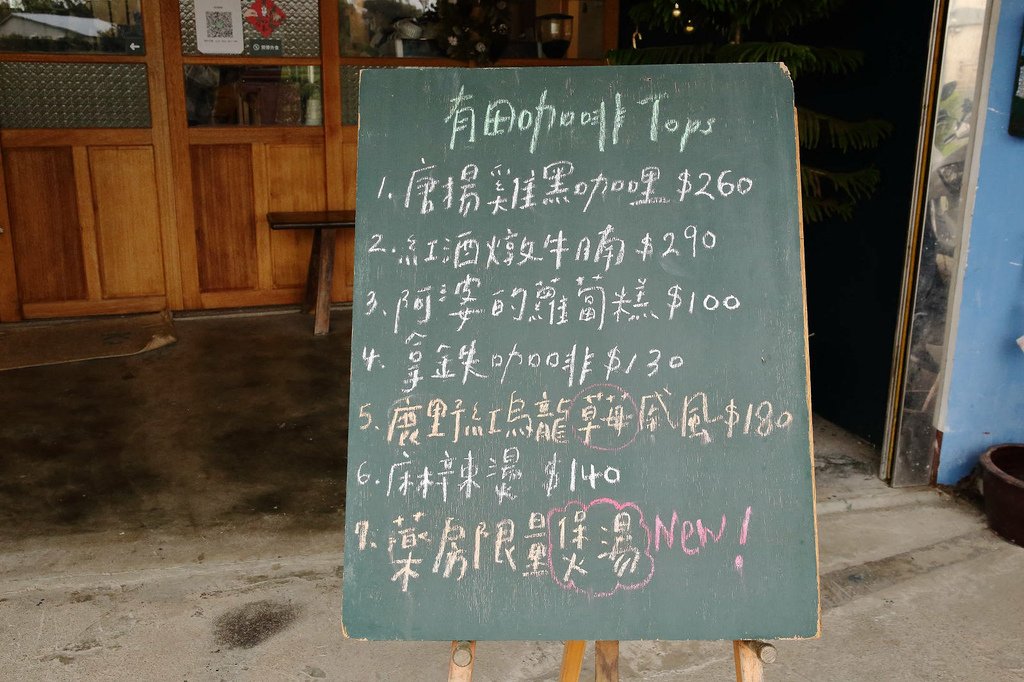 有田咖啡 Tops
1. 唐揚雞黑咖哩 $260
2. 紅酒燉牛腩 $290
3. 阿婆的蘿蔔糕 $100
4. 拿鉄咖啡 $130
5. 鹿野紅烏龍草莓戚風 $180
6. 麻辣燙 $140
7. 藥房限量煲湯 New!